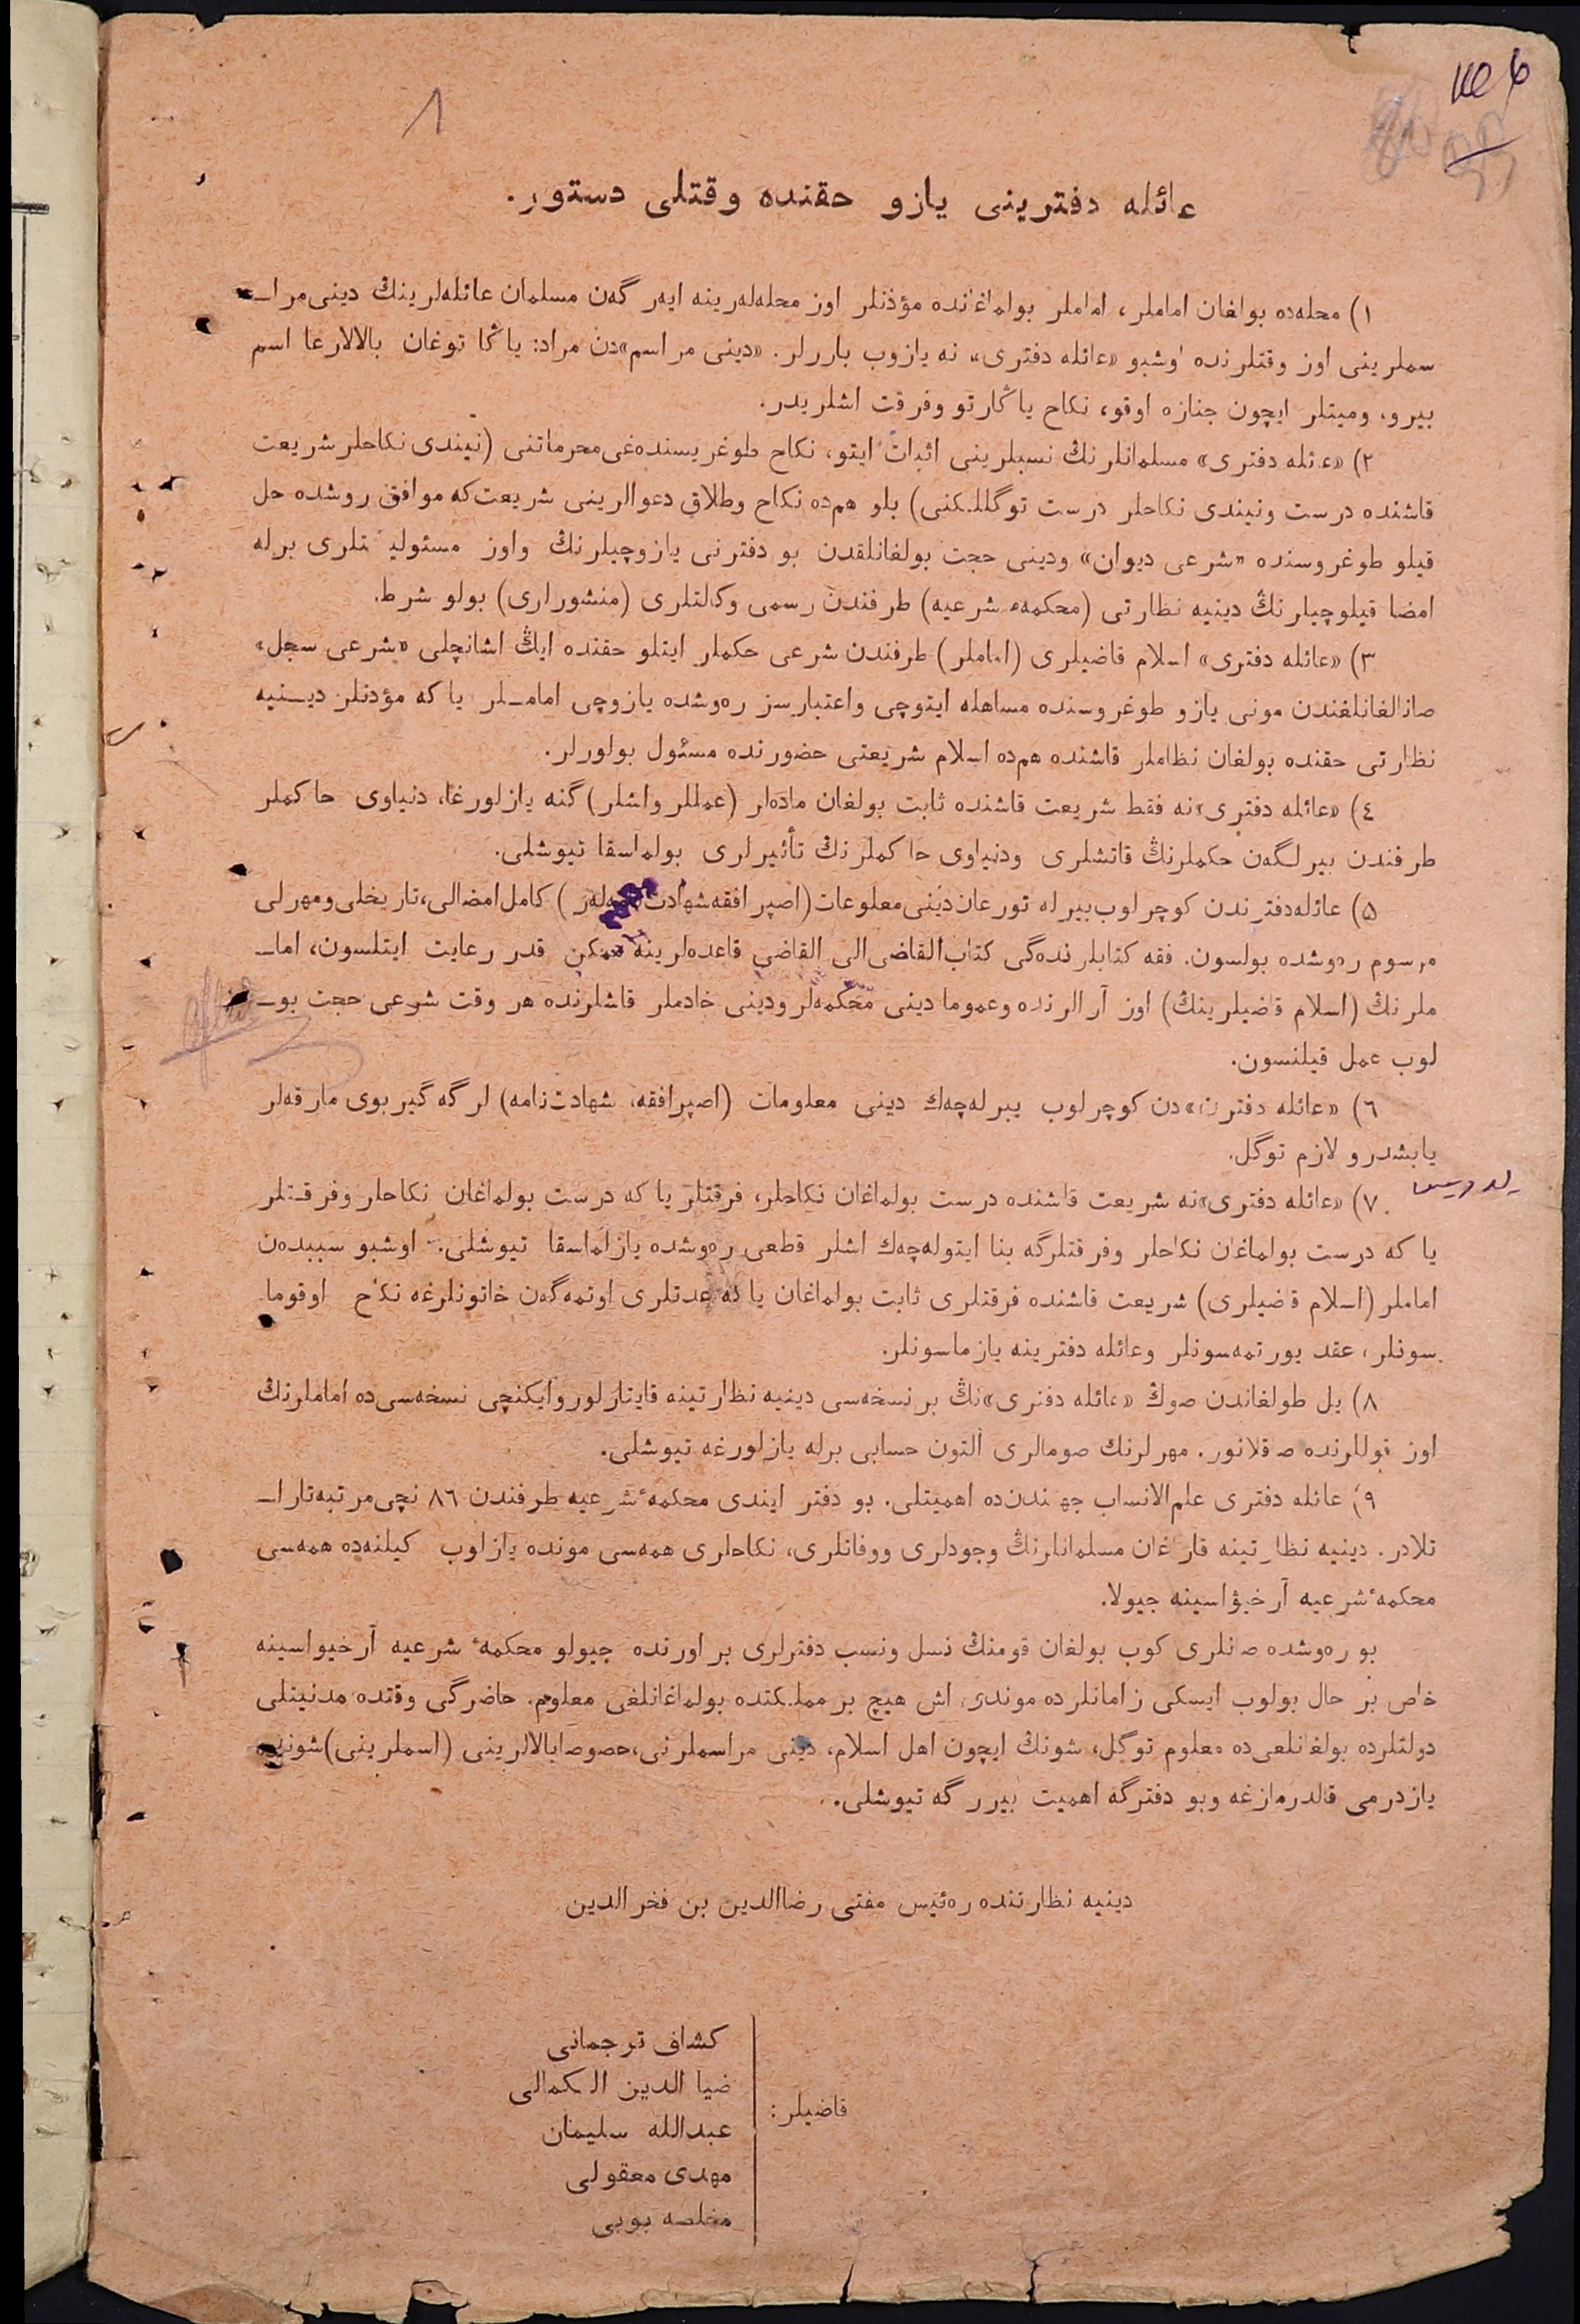 عائله دفترينی يازو حقنده وقتلی دستور.
۱) محله‌ده بولغان اماملر، اماملر بولماغانده مؤذنلر اوز محله‌لەرينه ايەرگەن مسلمان عائله‌لرينڭ دينی مرا‌ـ
سملرينی اوز وقتلرنده اوشبو «عائله دفتری» نه يازوب باررلر. «دينی مراسم»دن مراد: ياڭا توغان بالالارعا اسم
بيرو، وميتلر ايچون جنازه اوقو، نكاح ياڭارتو وفرقت اشلريدر.
۲) «عائله دفتری» مسلمانلرنڭ نسبلرينی اثبات ايتو، نكاح طوغريسنده‌غی محرماتنی (نيندی نكاحلر شريعت
قاشنده درست ونيندی نكاحلر درست توگللكنی) بلو هم‌ده نكاح وطلاق دعوالرينی شريعت‌كه موافق روشده حل
قيلو طوغروسنده «شرعی ديوان» ودينی حجت بولغانلقدن بو دفترنی يازوچيلرنڭ واوز مسئوليتلری برله
امضا قيلوچيلرنڭ دينيه نظارتی (محكمهٔ شرعيه) طرفندن رسمی وكالتلری (منشورلری) بولو شرط.
۳) «عائله دفتری» اسلام قاضيلری (اماملر) طرفندن شرعی حكملر ايتلو حقنده ايڭ اشانچلی «شرعی سجل»
صانالغانلغندن مونی يازو طوغروسنده مساهله ايتوچی واعتبارسز رەوشده يازوچی امامـلر يا كه مؤذنلر ديـنيه
نظارتی حقنده بولغان نظاملر قاشنده هم‌ده اسلام شريعتی حضورنده مسئول بولورلر.
٤) «عائله دفتری»نه فقط شريعت قاشنده ثابت بولغان ماده‌لر (عمللر واشلر) گنه يازلورغا، دنياوی حاكملر
طرفندن بيرلگەن حكملرنڭ قاتشلری ودنياوی حاكملرنڭ تأثيرلری بولماسقا تيوشلی.
۵) عائله‌دفترندن كوچرلوب بيرله تورغان دينی معلومات (اصپرافقه شهادت‌نامه‌لەر) كامل امضالی، تاريخلی ومهرلی
مرسوم رەوشده بولسون. فقه كتابلرنده‌گی كتاب القاضی الی القاضی قاعده‌لرينه ممكن قدر رعايت ايتلسون، اماـ
ملرنڭ (اسلام قاضيلرينڭ) اوز آرالرنده وعموما دينی محكمه‌لر ودينی خادملر قاشلرنده هر وقت شرعی حجت بوـ
لوب عمل قيلنسون.
٦) «عائله دفترن»دن كوچرلوب بيرله‌چەك دينی معلومات (اصپرافقه، شهادت‌نامه) لرگه گيربوی مارقه‌لر
يابشدرو لازم توگل.
۷) «عائله دفتری»نه شريعت قاشنده درست بولماغان نكاحلر، فرقتلر يا كه درست بولماغان نكاحلر وفرقـتلر
يا كه درست بولماغان نكاحلر وفرقتلرگه بنا ايتوله‌چەك اشلر قطعی رەوشده يازلماسقا تيوشلی. اوشبو سببدەن
اماملر (اسلام قاضيلری) شريعت قاشنده فرقتلری ثابت بولماغان يا كه عدتلری اوتمەگەن خاتونلرغه نكاح اوقوماـ
سونلر، عقد يورتمەسونلر وعائله دفترينه يازماسونلر.
۸) يل طولغاندن صوڭ «عائله دفتری»نڭ بر نسخه‌سی دينيه نظارتينه قايتارلور وايكنچی نسخه‌سی‌ده اماملرنڭ
اوز قوللرنده صاقلانور. مهرلرنڭ صومالری آلتون حسابی برله يازلورغه تيوشلی.
۹) عائله دفتری علم‌الانساب جهتندن‌ده اهميتلی. بو دفتر ايندی محكمهٔ شرعيه طرفندن ۸٦ نچی مرتبه تاراـ
تلادر. دينيه نظارتينه قاراغان مسلمانلرنڭ وجودلری ووفاتلری، نكاحلری همه‌سی مونده يازلوب كيلنەده همه‌سی
محكمهٔ شرعيه آرخيۋاسينه جيولا.
بو رەوشده صانلری كوب بولغان قومنڭ نسل ونسب دفترلری بر اورنده جيولو محكمهٔ شرعيه آرخيواسينه
خاص بر حال بولوب ايسكی زامانلرده موندی اش هيچ بر مملكتده بولماغانلغی معلوم. حاضرگی وقتده مدنيتلی
دولتلرده بولغانلغی‌ده معلوم توگل، شونڭ ايچون اهل اسلام، دينی مراسملرنی، خصوصا بالالرينی (اسملرينی) شوندە
يازدرمی قالدرمازغه وبو دفترگه اهميت بيررگه تيوشلی.
دينيه نظارتنده رەئيس مفتی رضاالدين بن فخرالدين
قاضيلر:
كشاف ترجمانی
ضيا الدين الكمالی
عبدالله سليمان
مهدی معقولی
مخلصه بوبی